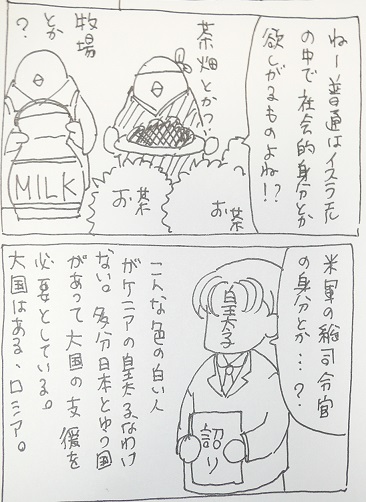 ねー普通はイスラエル
の中で社会的身分とか
欲しがるものよね!?
茶畑とか?
牧場
とか
?
お茶
お茶
MILK
米軍の総司令官
の身分とか…?
皇太子
訛り
こんな色の白い人
がケニアの皇太子なわけ
ない。多分日本とゆう国
があって大国の支援を
必要としている。
大国はある、ロシア。